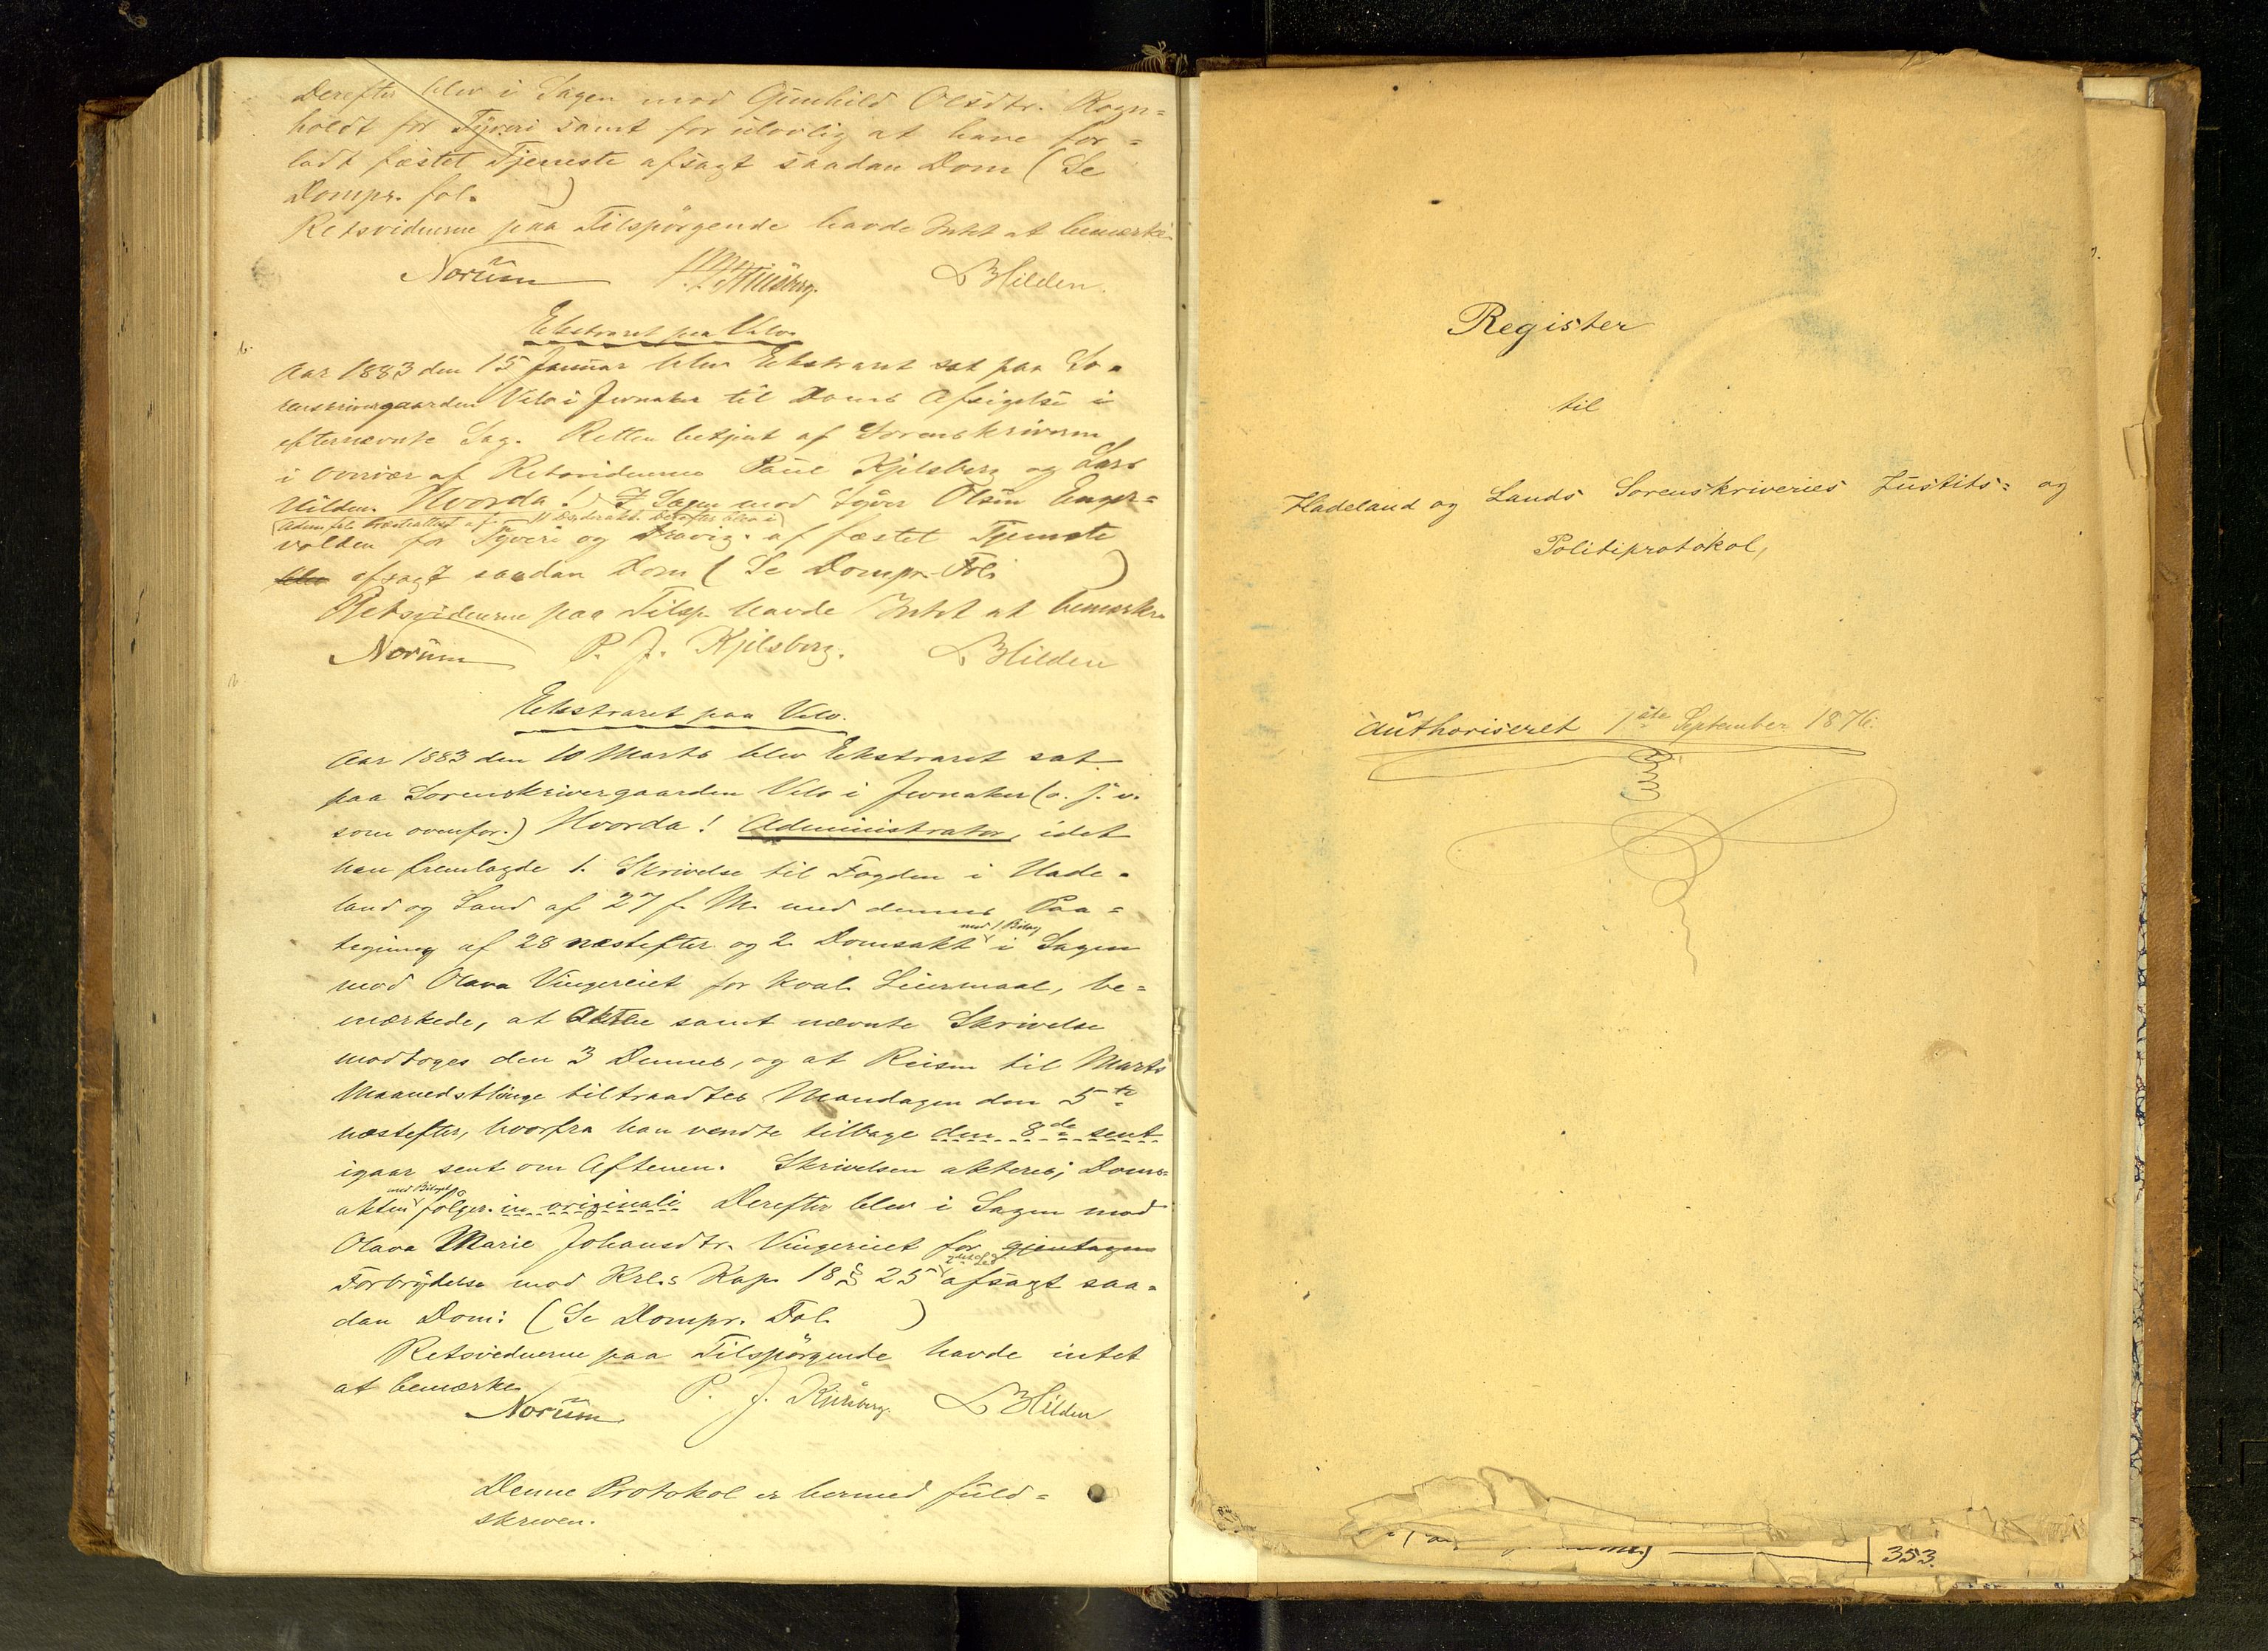 Derefter blev i Sagen mod Gunhild Olsdtr. Rogn=
holdt for Tyveri samt for ulovlig at have for=
ladt fæstet Tjeneste afsagt saadan Dom (Se
Dompr. fol. )
Retsvidnerne paa Tilspörgende havde Intet at bemærke
Norum L Hilden.
Ekstraret paa Velo.
Aar 1883 den 15 Januar blev Ekstraret sat paa So=
renskrivergaarden Velo i Jevnaker til Doms Afsigelse i
efternævnte Sag. Retten betjent af Sorenskriveren
i Overvær af Retsvidnerne Paul Kjilsberg og Lars
Hilden. Hvorda! I Sagen mod Iver Olsen Enger=
volden for Tyveri og af fæstet Tjeneste
blev afsagt saadan Dom (Se Dompr. Fol. )
Retsvidnerne paa Tilsp. havde Intet at bemærke
Norum P. J. Kjilsberg. L Hilden
Ekstraret paa Velo.
Aar 1883 den 10 Marts blev Ekstraret sat
paa Sorenskrivergaarden Velo i Jevnaker (o. s. v.
som ovenfor.) Hvorda! Administrator, idet
han fremlagde 1. Skrivelse til Fogden i Hade=
land og Land af 27 f. M. med dennes Paa=
tegning af 28 næstefter og 2. Domsakt med 1 Bilag i Sagen
mod Olava Vingereiet for kval. Leiermaal, be=
mærkede, at Akten samt nævnte Skrivelse
modtoges den 3 Dennes, og at Reisen til Marts
Maanedsthinge tiltraadtes Mandagen den 5te
næstefter, hvorfra han vendte tilbage den 8de sent
igaar sent om Aftenen. Skrivelsen akteres; Doms=
akten med Bilaget følger in originali. Derefter blev i Sagen mod
Olava Marie Johansdtr. Vingereiet for gjentagen
Forbrydelse mod Krl.s Kap. 18 § 25 afsagt saa=
dan Dom: (Se Dompr. Fol. )
Retsvidnerne paa Tilspörgende havde intet
at bemærke
Norum P. J. Kjilsberg. L Hilden
Denne Protokol er hermed fuld=
skreven.
Register
til
Hadeland og Lands Sorenskriveries Justits= og
Politiprotokol,
Authoriseret 1ste September 1876.
353.